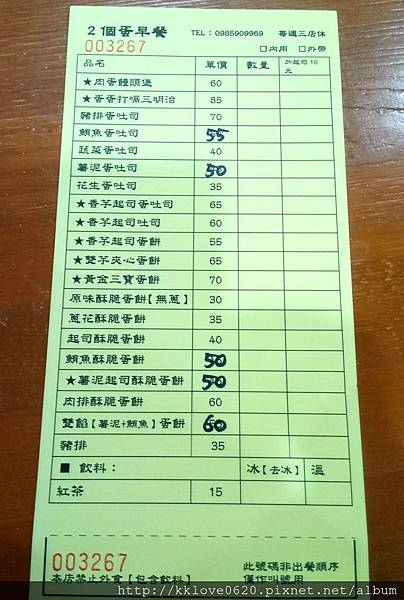 2個蛋早餐 TEL：0985909969 每週三店休
003267 □內用 □外帶
品名 單價 數量 加起司10元
★肉蛋饅頭堡 60
★蛋蛋打嗝三明治 85
豬排蛋吐司 70
鮪魚蛋吐司 55
蔬菜蛋吐司 40
薯泥蛋吐司 50
花生蛋吐司 35
★香芋起司蛋吐司 65
★香芋起司吐司 60
★香芋起司蛋餅 55
★雙芋夾心蛋餅 65
★黃金三寶蛋餅 70
原味酥脆蛋餅【無蔥】 30
蔥花酥脆蛋餅 35
起司酥脆蛋餅 40
鮪魚酥脆蛋餅 50
★薯泥起司酥脆蛋餅 50
肉排酥脆蛋餅 60
雙餡【薯泥+鮪魚】蛋餅 60
豬排 35
■ 飲料： 冰【去冰】 溫
紅茶 15
003267 此號碼非出餐順序
本店禁止外食【包含飲料】 僅作叫號用
http://kklove0620.pixnet.net/album